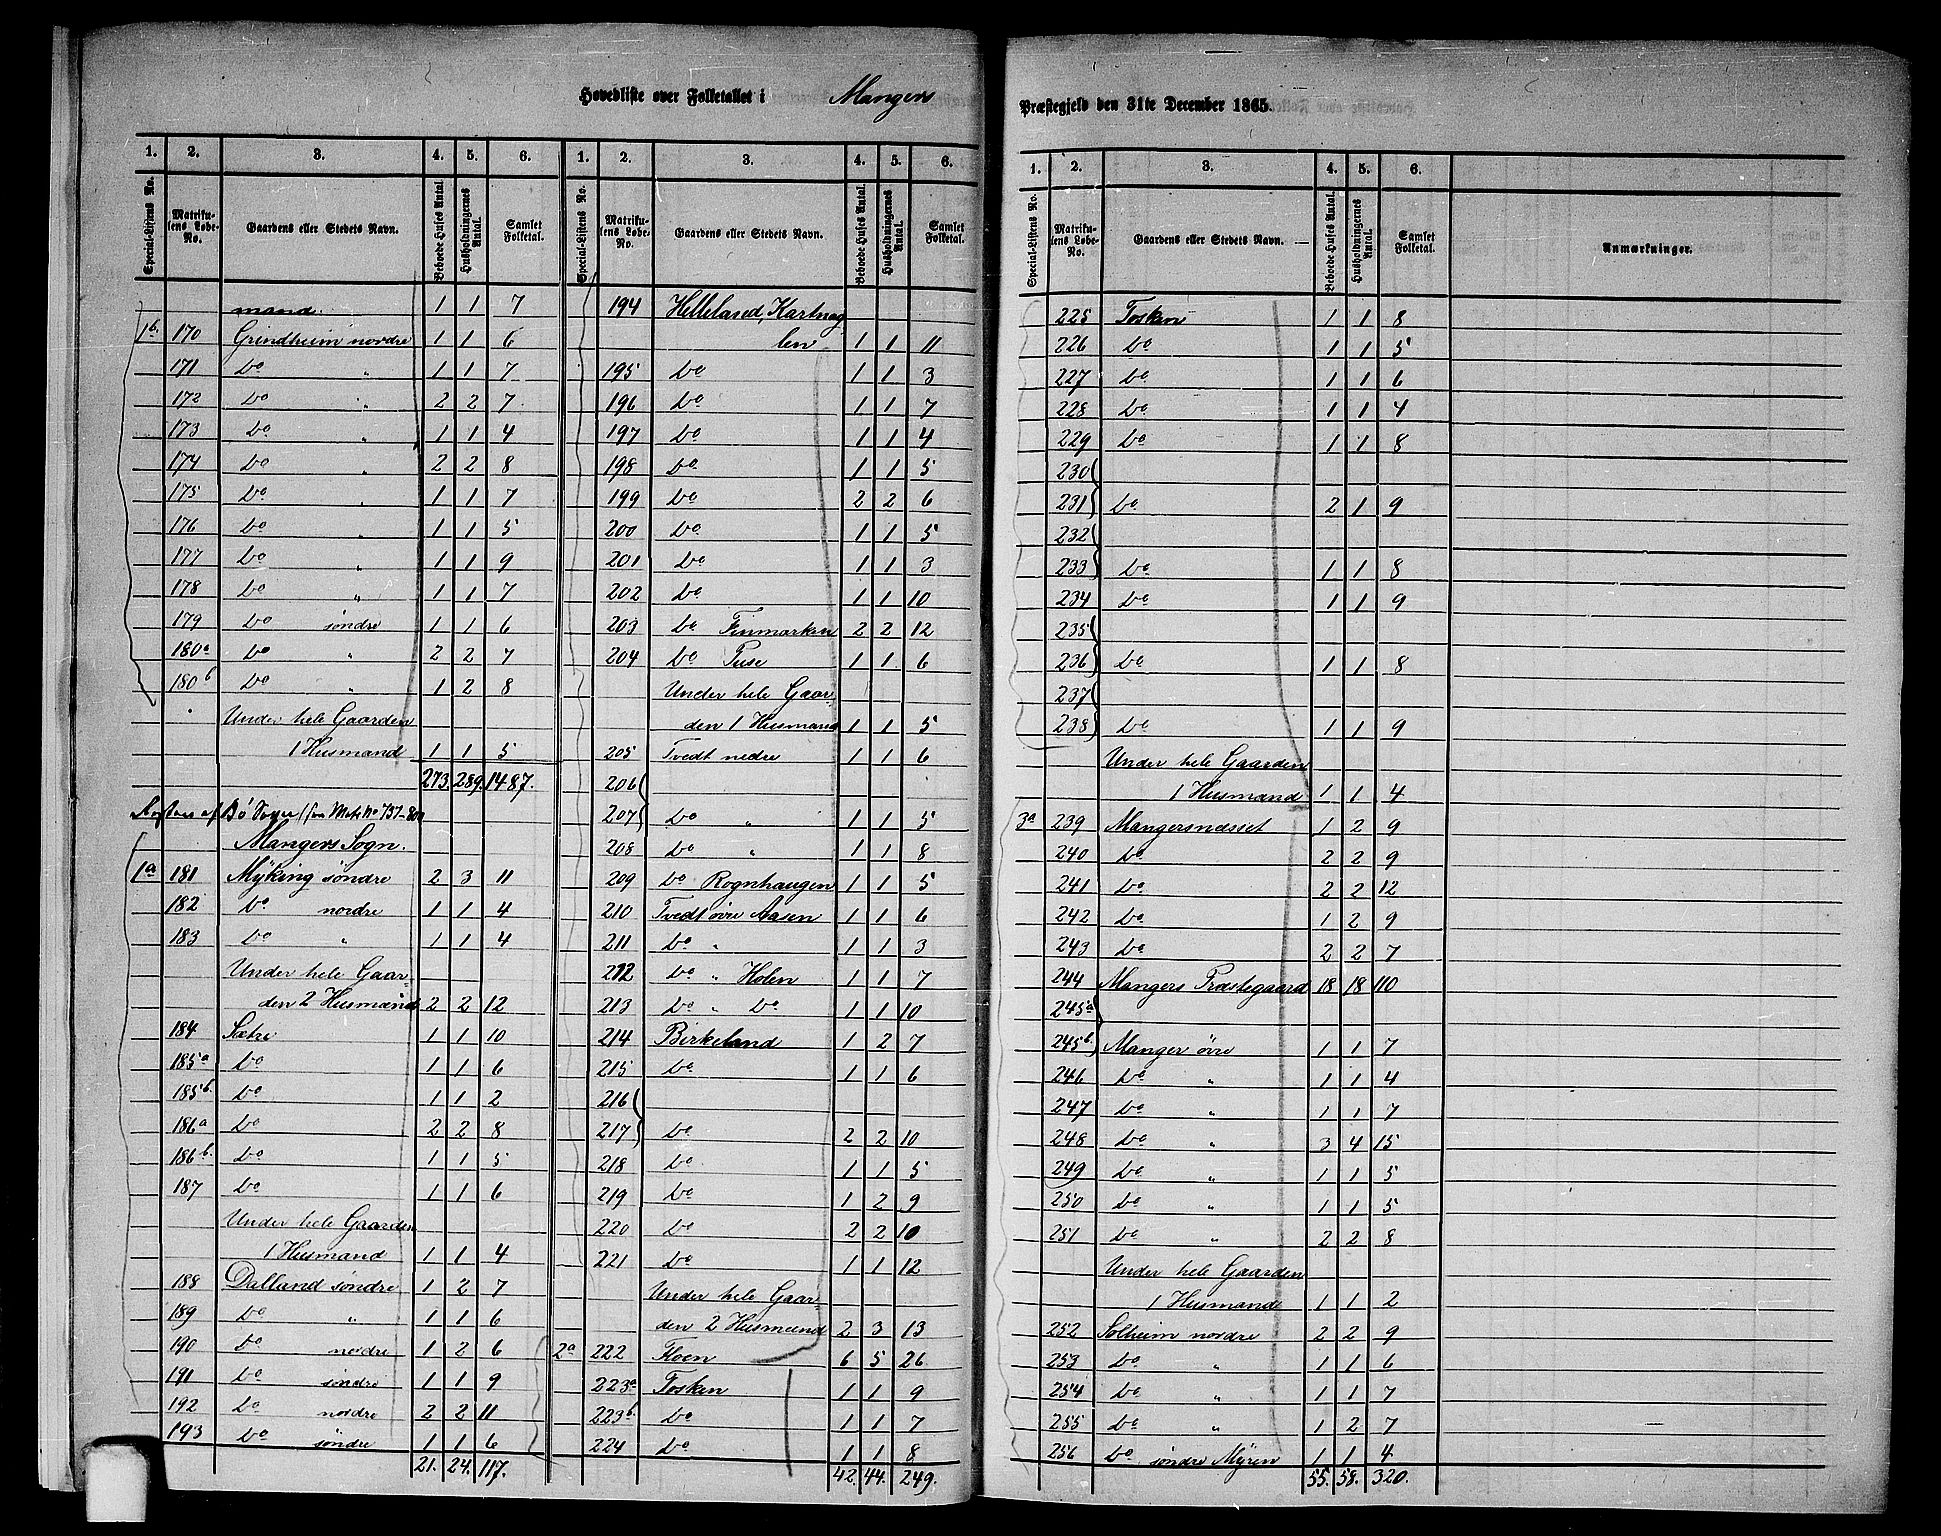 Hovedliste over Folketallet i Manger Præstegjeld den 31te December 1865.
1. 2. 3. 4. 5. 6.
Special-Listens No. Matrikulens Løbe-No. Gaardens eller Stedets Navn. Beboede Huses Antal. Husholdningernes Antal. Samlet Folketal.
mand. 1 1 7
1b. 170 Grindheim nordre 1 1 6
171 Do " 1 1 7
172 Do " 2 2 7
173 Do " 1 1 4
174 Do " 2 2 8
175 Do " 1 1 7
176 Do " 1 1 5
177 Do " 1 1 9
178 Do " 1 1 7
179 Do søndre 1 1 6
180a Do " 2 2 7
180b Do " 1 2 8
Under hele Gaarden
1 Husmand 1 1 5
273. 289. 1487.
af Bø Sogn
Mangers Sogn.
1a 181 Myking søndre 2 3 11
182 Do nordre 1 1 4
183 Do " 1 1 4
Under hele Gaar-
den 2 Husmænd 2 2 12
184 Sætre 1 1 10
185a Do 1 1 6
185b. Do 1 1 2
186a Do 2 2 8
186b. Do 1 1 5
187 Do 1 1 6
Under hele Gaarden
1 Husmand 1 1 4
188 Dalland søndre 1 2 7
189 Do " 1 1 6
190 Do nordre 1 2 6
191 Do søndre 1 1 9
192 Do nordre 2 2 11
193 Do søndre 1 1 6
21. 24. 117.
1. 2. 3. 4. 5. 6.
Special-Listens No. Matrikulens Løbe-No. Gaardens eller Stedets Navn. Beboede Huses Antal. Husholdningernes Antal. Samlet Folketal.
194 Helleland, Kartnag
len 1 1 11
195 Do 1 1 3
196 Do 1 1 7
197 Do 1 1 4
198 Do 1 1 5
199 Do 2 2 6
200 Do 1 1 5
201 Do 1 1 3
202 Do 1 1 10
203 Do Finmarken 2 2 12
204 Do Tuse 1 1 6
Under hele Gaar-
den 1 Husmand 1 1 5
205 Tvedt nedre 1 1 6
206
207 Do " 1 1 5
208 Do " 1 1 8
209 Do Rognhaugen 1 1 5
210 Tvedt øvre Aasen 1 1 6
211 Do " 1 1 3
212 Do " Holen 1 1 7
213 Do " Do 1 1 10
214 Birkeland 1 2 7
215 Do 1 1 6
216
217 Do 2 2 10
218 Do 1 1 5
219 Do 1 2 9
220 Do 2 2 10
221 Do 1 1 12
Under hele Gaar-
den 2 Husmænd 2 3 13
2a 222 Floen 6 5 26
223a Tosken 1 1 9
223b. Do 1 1 7
224 Do 1 1 8
42. 44. 249.
1. 2. 3. 4. 5. 6.
Special-Listens No. Matrikulens Løbe-No. Gaardens eller Stedets Navn. Beboede Huses Antal. Husholdningernes Antal. Samlet Folketal. Anmærkninger.
225 Tosken 1 1 8
226 Do 1 1 5
227 Do 1 1 6
228 Do 1 1 4
229 Do 1 1 8
230
231 Do 2 1 9
232
233 Do 1 1 8
234 Do 1 1 9
235
236 Do 1 1 8
237
238 Do 1 1 9
Under hele Gaarden
1 Husmand 1 1 4
3a 239 Mangersnæsset 1 2 9
240 Do 2 2 9
241 Do 2 2 12
242 Do 1 2 9
243 Do 2 2 7
244 Mangers Præstegaard 18 18 110
245a
245b. Manger øvre 1 1 7
246 Do " 1 1 4
247 Do " 1 1 7
248 Do " 3 4 15
249 Do " 1 1 5
250 Do " 1 1 5
251 Do " 2 2 8
Under hele Gaarden
1 Husmand 1 1 2
252 Solheim nordre 2 2 9
253 Do " 1 1 6
254 Do " 1 1 7
255 Do " 1 2 7
256 Do søndre Myren 1 1 4
55. 58. 320.